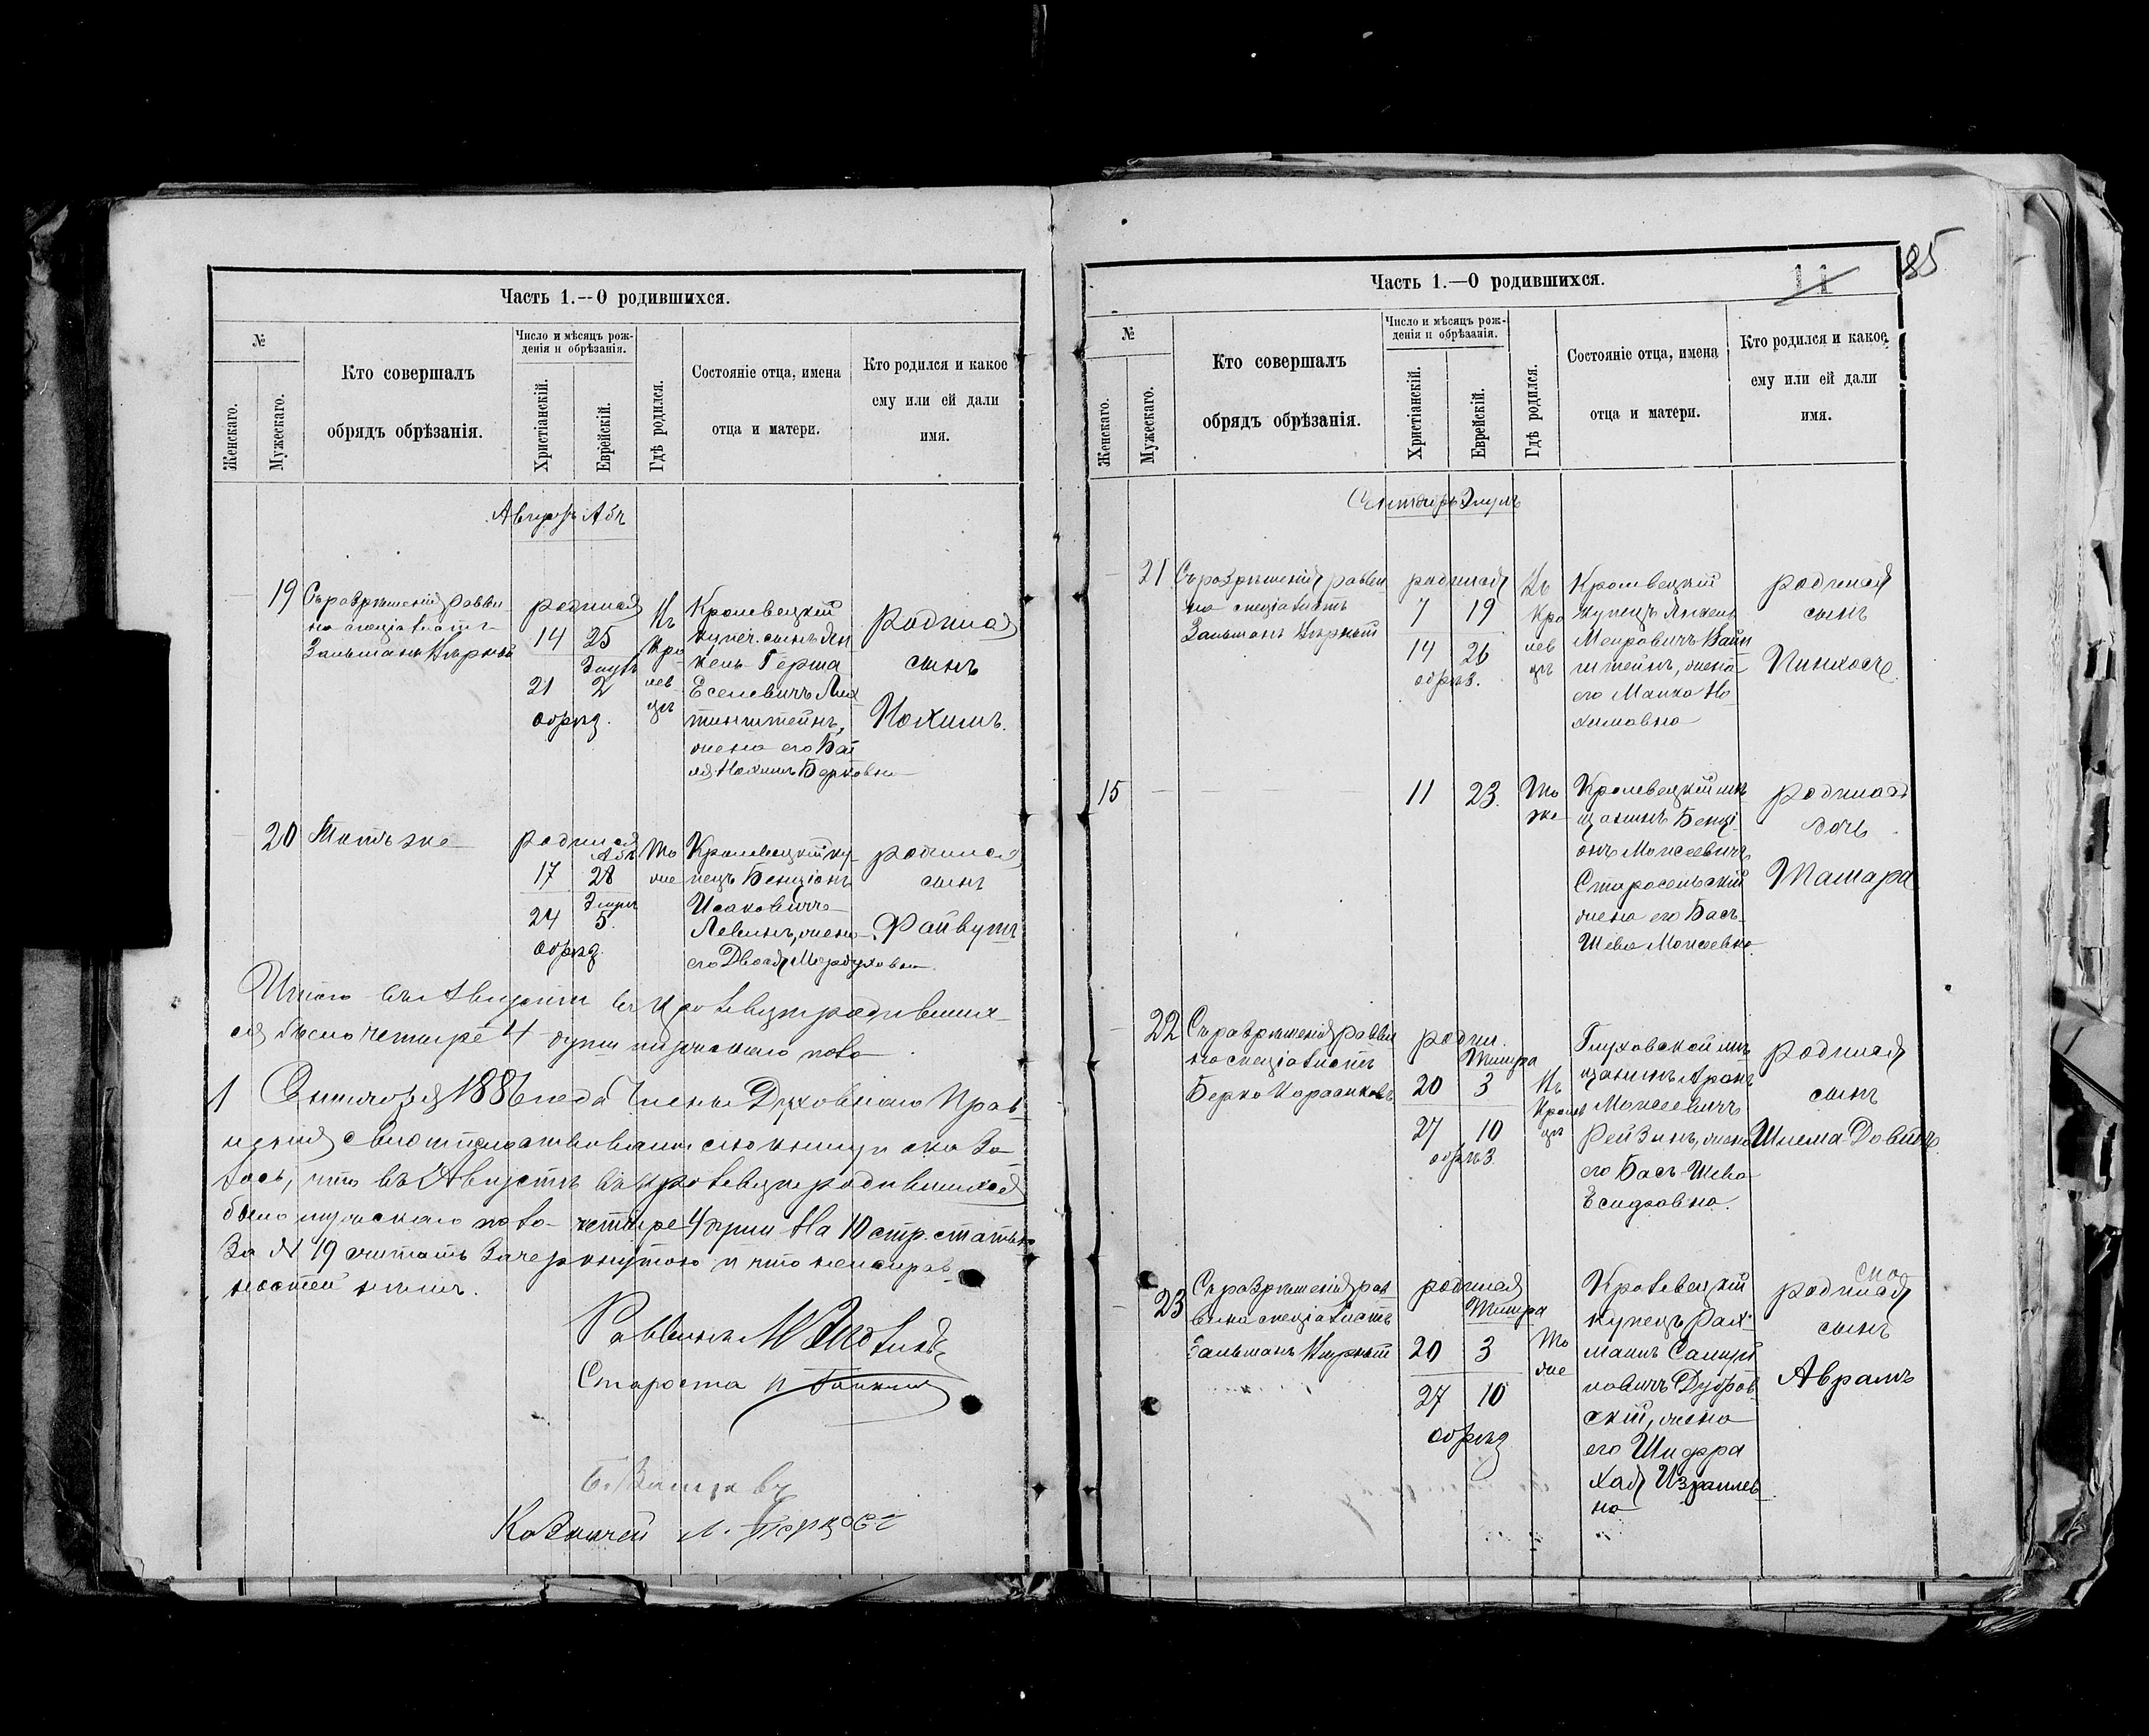 Часть 1.--О родившихся.
№
Женскаго.
Мужескаго.
Кто совершалъ
обрядъ обрѣзанія.
Число и мѣсяцъ рож-
денія и обрѣзанія.
Христіанскій.
Еврейскій.
Гдѣ родился.
Состояніе отца, имена
отца и матери.
Кто родился и какое
ему или ей дали
имя.
Августъ Абъ
19
Съ разрѣшенія равви
на спеціалистъ
Зальманъ
родился
14 25
Элулъ
21 2
обрѣз.
Въ
Кро
лев
цѣ
Кролевецкій
купеч. сынъ Ян
кель Герша
Еселевичъ Лих
тинштейнъ,
жена его Бей
ля Нохимъ Берковна
родился
сынъ
Нохимъ.
20
Тотъ же
родился
Абъ
17 28
Элулъ
24 5.
обрѣз.
То
же
Кролевецкій ку-
пецъ Бенціонъ
Исаковичъ
Левинъ, жена
его Двося Мордуховна
родился
сынъ
Файвушъ
Итого въ Августѣ въ Кролевцѣ родивших-
ся было четыре 4 души мужскаго пола
1 Сентября 1886 года Члены Духовнаго Прав-
ленія свидѣтельствовали сію книгу и оказа-
лось, что въ Августѣ въ Кролевцѣ родившихся
было мужскаго пола четыре 4 души. На 10 стр. статью
за № 19 считать зачеркнутою и что неисправ-
ностей нѣтъ.
Раввинъ
Староста
Казначей
Часть 1.—О родившихся.
11
85
№
Женскаго.
Мужескаго.
Кто совершалъ
обрядъ обрѣзанія.
Число и мѣсяцъ рож-
денія и обрѣзанія.
Христіанскій.
Еврейскій.
Гдѣ родился.
Состояніе отца, имена
отца и матери.
Кто родился и какое
ему или ей дали
имя.
Сентябрь Элулъ
21
Съ разрѣшенія равви
на спеціалистъ
Зальманъ
родился
7 19
14 26
обрѣз.
Въ
Кро
лев
цѣ
Кролевецкій
купецъ Янкель
Меировичъ Вайн
штейнъ, жена
его Малка Но
химовна
родился
сынъ
Пинхосъ.
15
11 23.
То
же
Кролевецкій мѣ
щанинъ Бенці
онъ Моисеевичъ
Старосельскій
жена его Бась-
Шева Моисеевна
родилась
дочь
Тамара
22
Съ разрѣшенія равви
на спеціалистъ
Берко
родил.
Тишра
20 3
27 10
обрѣз.
Въ
Кролев
цѣ
Глуховской мѣ
щанинъ Аронъ
Моисеевичъ
Рейзинъ, жена
его Бась-Шева
родился
сынъ
Шлема-Довидъ.
23
Съ разрѣшенія рав
вина спеціалистъ
Зальманъ
родился
Тишра
20 3
27 10
обрѣз
То
же
Кролевецкій
купецъ Рах
маилъ Самуй
ловичъ Дубров
скій, жена
его Шифра
Хая Израилев-
на
родился
сынъ
Аврамъ